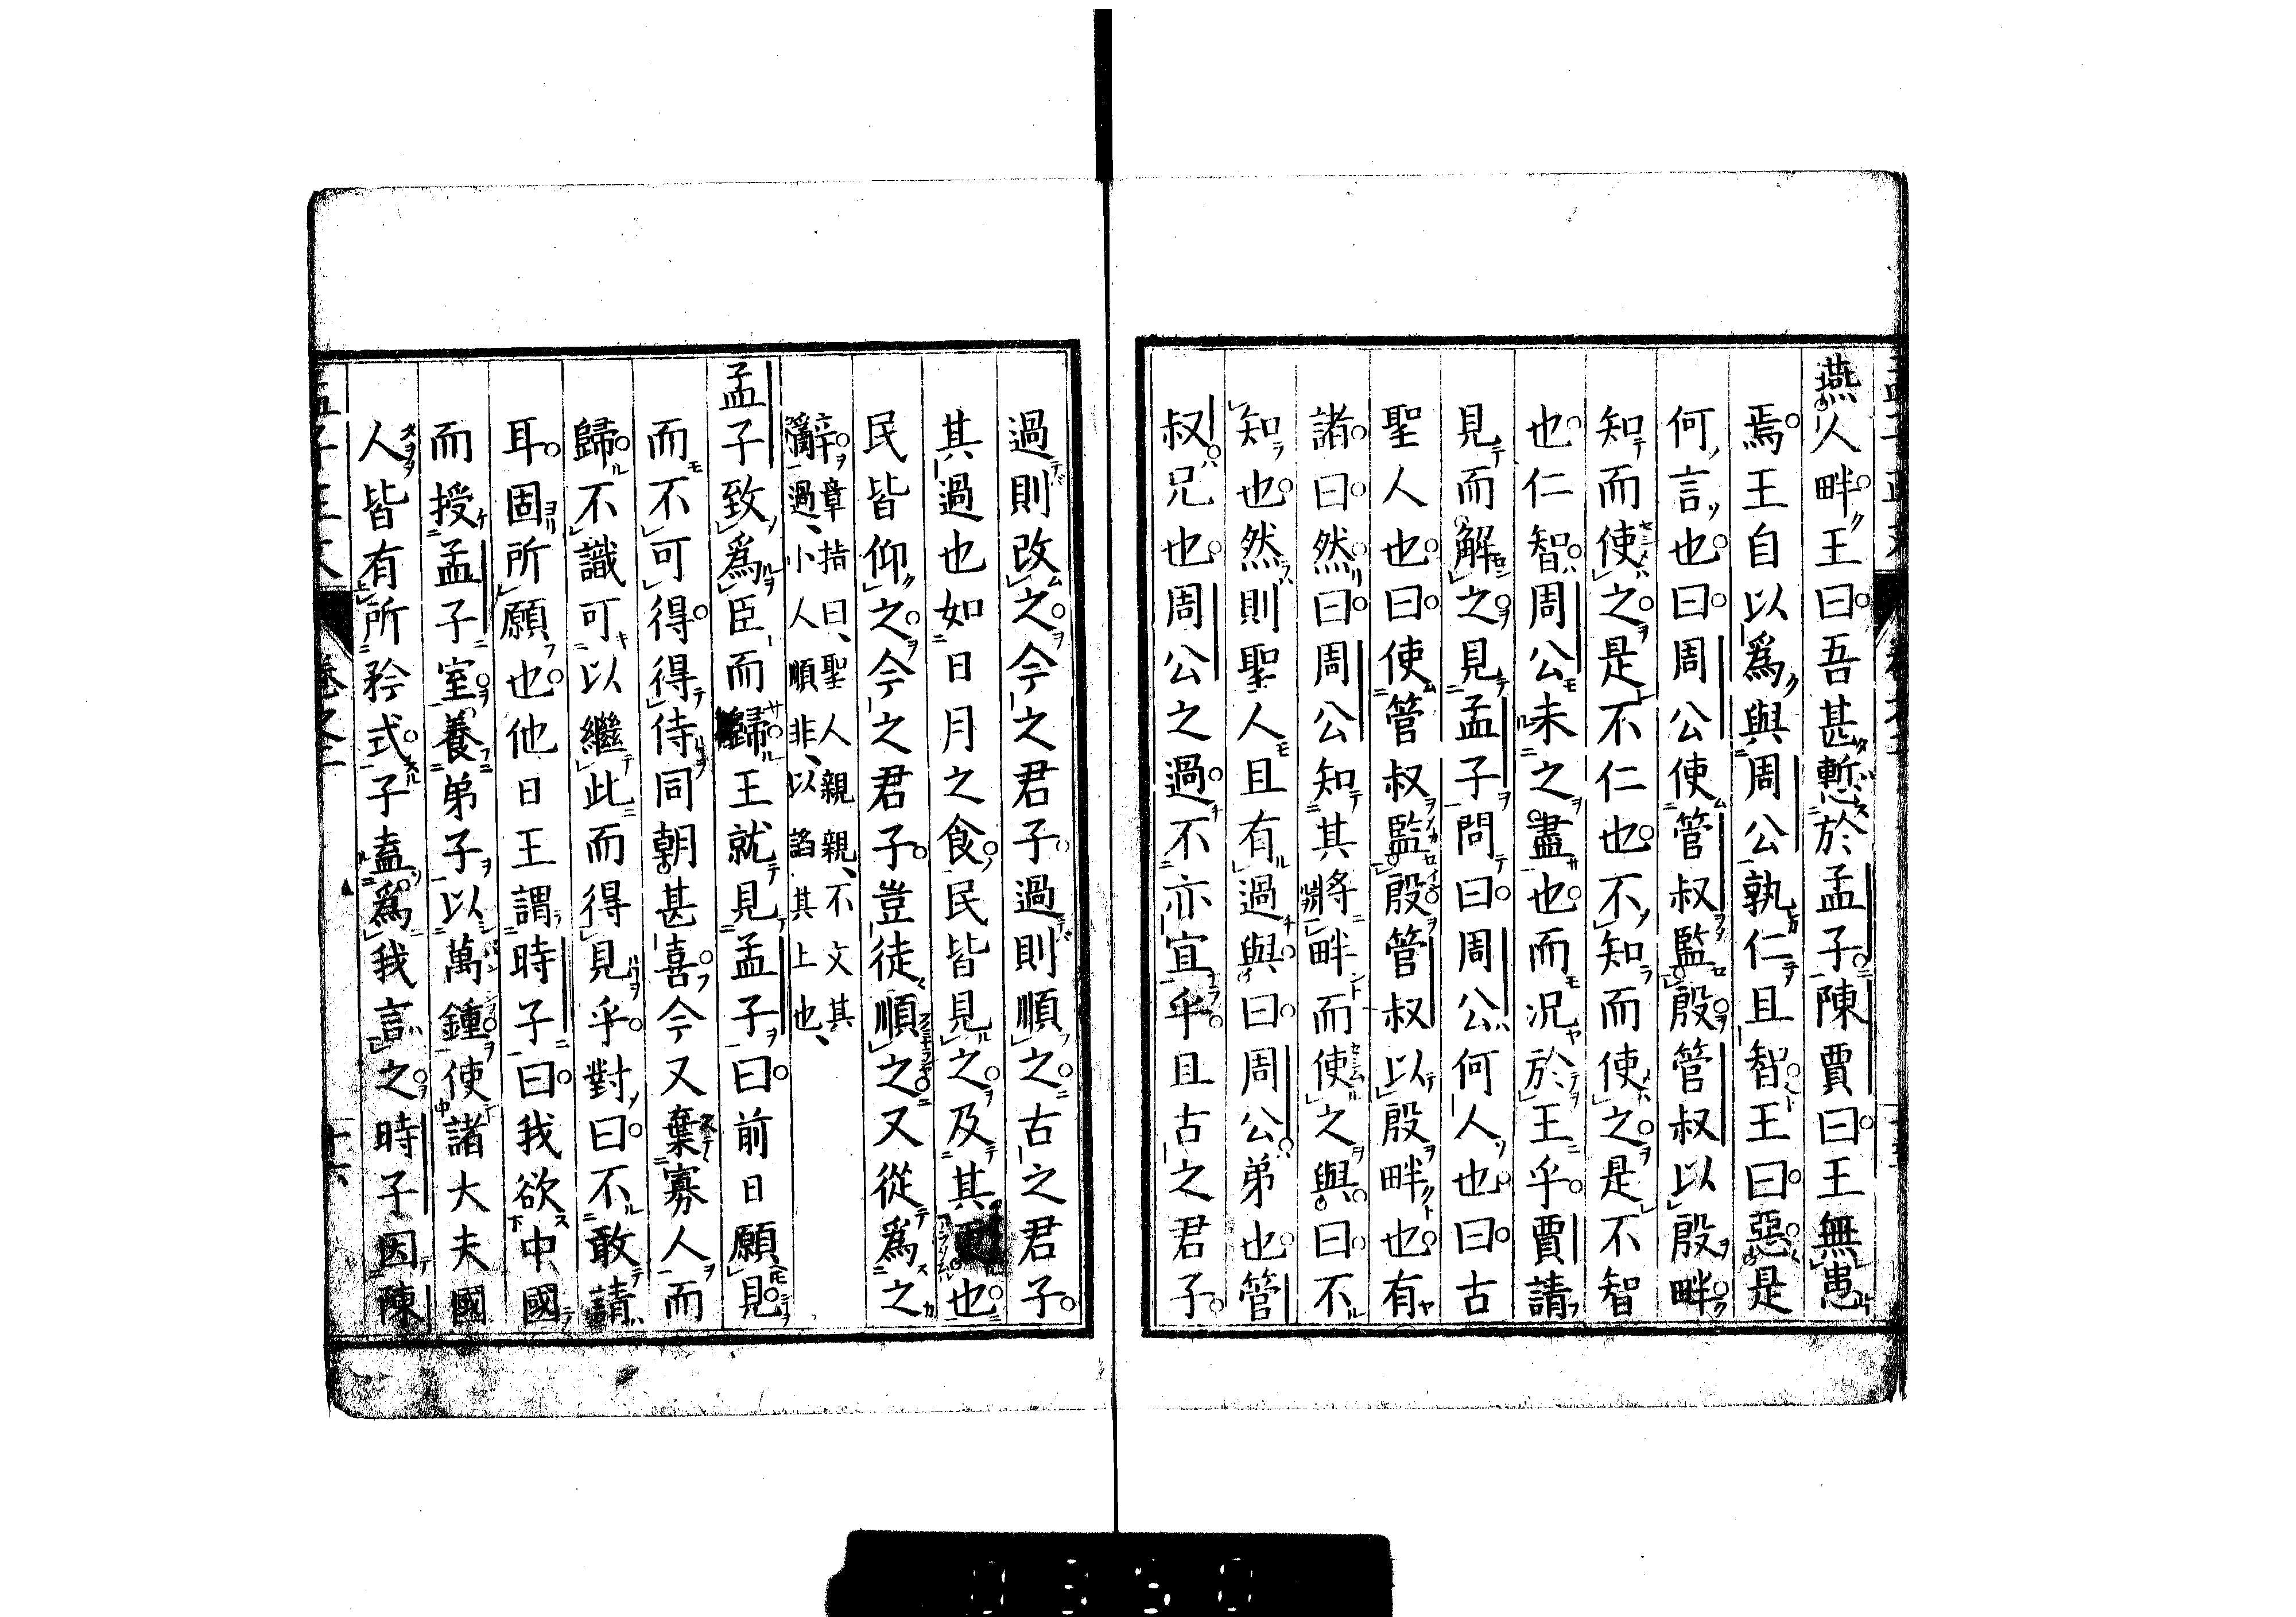 燕人畔王曰吾甚慙於孟子陳賈曰王無患
焉王自以爲與周公孰仁且智王曰惡是
何言也曰周公使管叔監殷管叔以殷畔
知而使之是不仁也不知而使之是不智
也仁智周公未之盡也而況於王乎賈請
見而解之見孟子問曰周公何人也曰古
聖人也曰使管叔監殷管叔以殷畔也有
諸曰然曰周公知其將畔而使之與曰不
知也然則聖人且有過與曰周公弟也管
叔兄也周公之過不亦宜乎且古之君子
過則改之今之君子過則順之古之君子
其過也如日月之食民皆見之及其也
民皆仰之今之君子豈徒順之又從爲之
辭章指曰、聖人親親、不文其
過、小人順非、以諂其上也、
孟子致爲臣而歸王就見孟子曰前日願見
而不可得得侍同朝甚喜今又棄寡人而
歸不識可以繼此而得見乎對曰不敢請
耳固所願也他日王謂時子曰我欲中國
而授孟子室養弟子以萬鍾使諸大夫國
人皆有所矜式子盍爲我言之時子因陳
0350